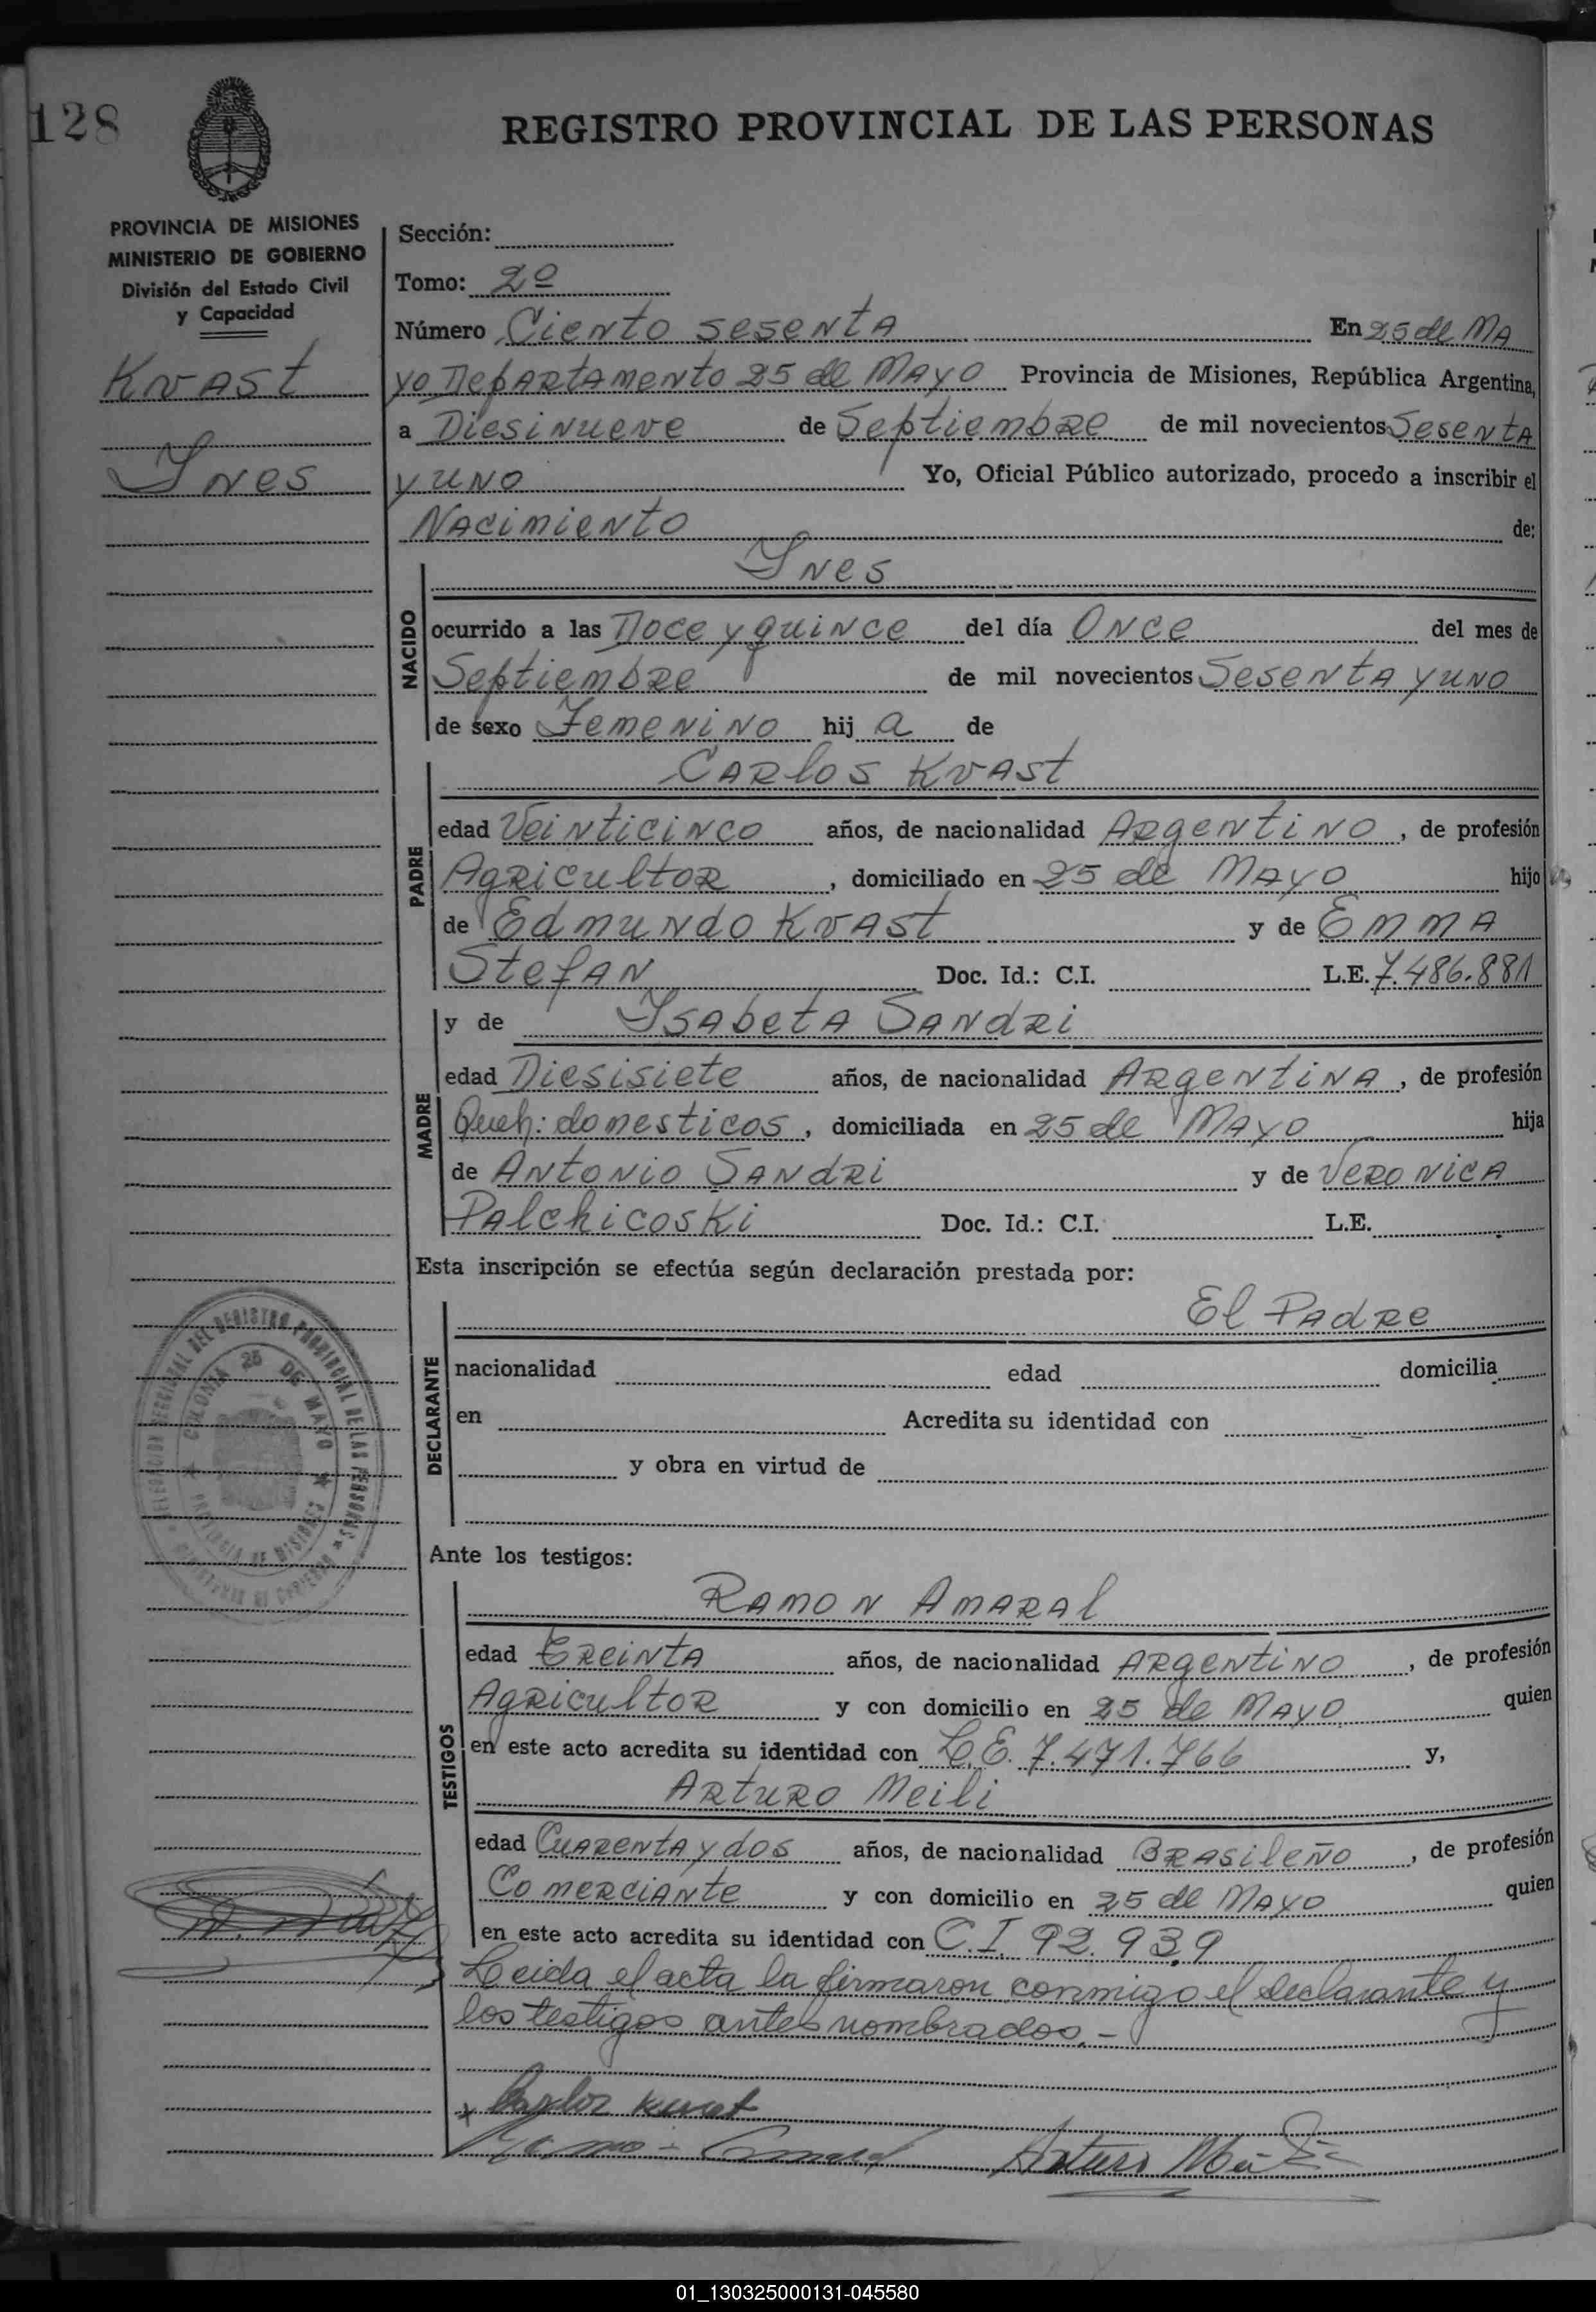 128
REGISTRO PROVINCIAL DE LAS PERSONAS
PROVINCIA DE MISIONES
MINISTERIO DE GOBIERNO
División del Estado Civil
y Capacidad
Kvast
Ynes
Sección:
Tomo: 2º
Número Ciento sesenta En 25 de MA
yo Departamento 25 de Mayo Provincia de Misiones, República Argentina,
a Diesinueve de Septiembre de mil novecientos Sesenta
y uno Yo, Oficial Público autorizado, procedo a inscribir el
Nacimiento de:
Ynes
NACIDO
ocurrido a las Doce y quince del día Once del mes de
Septiembre de mil novecientos Sesenta y uno
de sexo Femenino hij a de
Carlos Kvast
PADRE
edad Veinticinco años, de nacionalidad Argentino, de profesión
Agricultor, domiciliado en 25 de Mayo hijo
de Edmundo Kvast y de Emma
Stefan Doc. Id.: C.I. L.E. 7.486.881
y de Ysabeta Sandri
MADRE
edad Diesisiete años, de nacionalidad Argentina, de profesión
Queh: domesticos, domiciliada en 25 de Mayo hija
de Antonio Sandri y de Veronica
Palchicoski Doc. Id.: C.I. L.E.
Esta inscripción se efectúa según declaración prestada por:
El Padre
DECLARANTE
nacionalidad edad domicilia
en Acredita su identidad con
y obra en virtud de
COLONIA 25 DE MAYO
PROVINCIA DE MISIONES
DEL REGISTRO PROVINCIAL DE LAS PERSONAS
Ante los testigos:
Ramon Amaral
TESTIGOS
edad Treinta años, de nacionalidad Argentino, de profesión
Agricultor y con domicilio en 25 de Mayo quien
en este acto acredita su identidad con L.E. 7.471.766 y,
Arturo Meili
edad Cuarenta y dos años, de nacionalidad Brasileño, de profesión
Comerciante y con domicilio en 25 de Mayo quien
en este acto acredita su identidad con C.I. 92.939
Leida el acta la firmaron conmigo el declarante y
los testigos antes nombrados.-
x Carlos Kvast
Arturo Meili
01_130325000131-045580